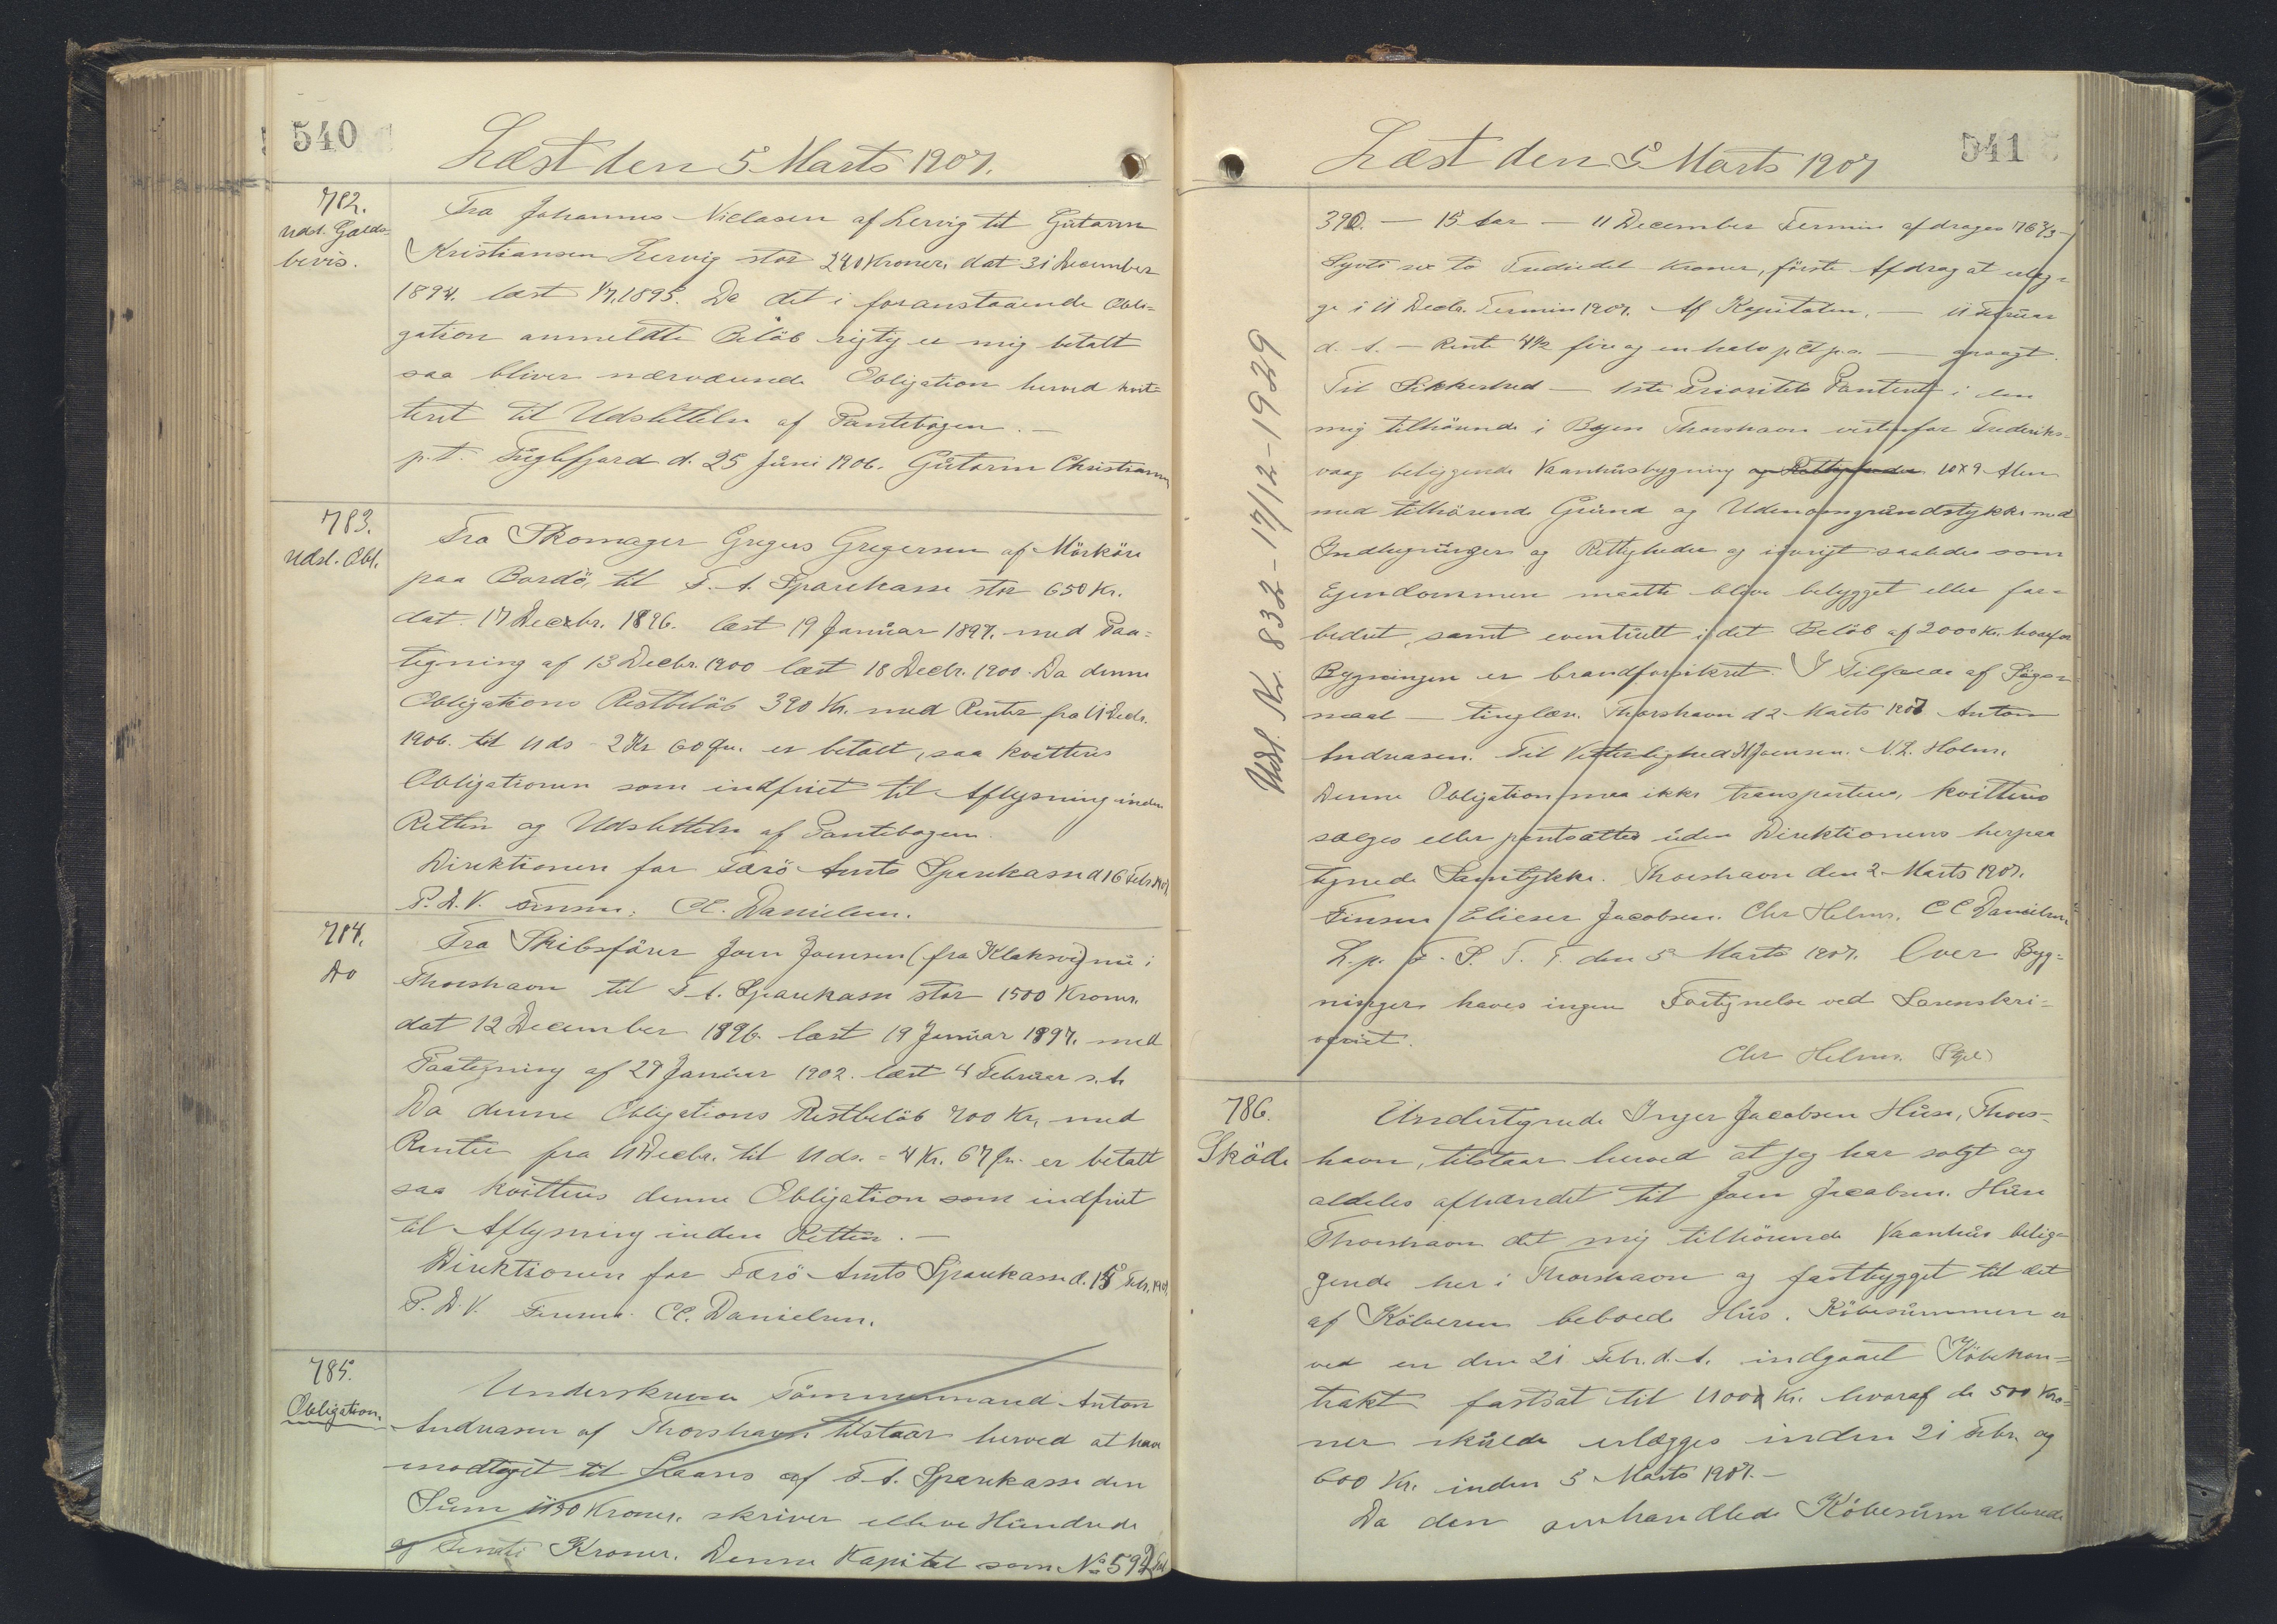 540
Læst den 5 Marts 1907.
782.
Udsl. Gælds-
bevis.
Fra Johannes Niclasen af Lervig til Gutorm
Kristiansen Lervig stor 240 Kroner, dat 31 December
1894. læst 1/7 1895. Da det i foranstaaende Obli-
gation anmeldte Beløb rigtig er mig betalt
saa bliver nærværende Obligation herved kvit-
teret til Udslettelse af Pantebogen. —
p.t. Fuglefjord d. 25 Juni 1906. Gutorm Christiansen
783.
Udsl. Obl.
Fra Skomager Gregers Gregersen af Mörköre
paa Bordö, til F. A. Sparekasse stor 650 Kr.
dat. 17 Decbr. 1896. læst 19 Januar 1897. med Paa-
tegning af 13 Decbr. 1900 læst 18 Decbr. 1900. Da denne
Obligations Restbelöb 390 Kr. med Renter fra 11 Decbr.
1906. til Uds - 2 Kr 60 Øre. er betalt, saa kvitteres
Obligationen som indfriet til Aflysning inden
Retten og Udslettelse af Pantebogen.
Direktionen for Færö Amts Sparekasse d 16 Febr. 1907
P. D. V. Finsen. CC. Danielsen.
784.
Do
Fra Skibsförer Joen Joensen (fra Klaksvig) nu i
Thorshavn til F. A. Sparekasse stor 1500 Kroner.
dat 12 December 1896. læst 19 Januar 1897. med
Paategning af 29 Januar 1902. læst 4 Februar s. A.
Da denne Obligations Restbelöb 700 Kr. med
Renter fra 11 Decbr. til Uds. = 4 Kr. 67 Øre. er betalt
saa kvitteres denne Obligation som indfriet
til Aflysning inden Retten. —
Direktionen for Færö Amts Sparekasse d. 15 Febr. 1907
P. D. V. Finsen. CC. Danielsen.
785.
Obligation.
Underskrevne Tömmermand Anton
Andreasen af Thorshavn tilstaar herved at have
modtaget til Laans af F. A. Sparekasse den
Sum 1150 Kroner. skriver elleve Hundrede
og Kroner. Denne Kapital som No 592
541
Læst den 5 Marts 1907
390. — 15 Aar — 11 December Termin afdrages 76 2/3
Syvti sex to Trediedel Kroner, förste Afdrag at erlæg-
ge i 11 Decbr. Termin 1907. Af Kapitalen, — 11 Februar
d. A. — Rente 4½ fire og en halv p Ct p.a. — opsagt.
Til Sikkerhed — 1ste Prioritets Panteret i den
mig tilhörende i Byen Thorshavn vestenfor Frederiks-
vaag beliggende Vaanhusbygning og Rettigheder 10 x 9 Alen
med tilhörende Grund og Udenomgrundstykke med
Indhegninger og Rettigheder og iövrigt saaledes som
Ejendommen maatte blive bebygget eller for-
bedret, samt eventuelt i det Belöb af 2000 Kr. hvorfor
Bygningen er brandforsikret. I Tilfælde af Sögs-
maal — tinglæs. Thorshavn d 2 Marts 1907 Anton
Andreasen. Til Vitterlighed H Joensen. N. L. Holm.
Denne Obligation maa ikke transporteres, kvitteres
sælges eller pantsættes uden Direktionens herpaa
tegnede Samtykke. Thorshavn den 2 Marts 1907.
Finsen Elieser Jacobsen. Chr Helms. CC Danielsen
L. p. F. S. T. T. den 5 Marts 1907. Over Byg-
ninger haves ingen Fortegnelse ved Sorenskri-
veriet.
Chr Helms.
Udsl. Nr. 832 - 17/12 - 1929
786.
Sköde
Undertegnede Inger Jacobsen Húse, Thors-
havn, tilstaar herved at jeg har solgt og
aldeles afhændet til Joen Jacobsen. Húse
Thorshavn det mig tilhörende Vaanhus belig-
gende her i Thorshavn og fastbygget til det
af Köberen beboede Hus. Köbesummen er
ved en den 21 Febr. d. A. indgaaet Köbekon-
trakt fastsat til 1100 Kr. hvoraf de 500 Kro-
ner skulde erlægges inden 21 Febr. og
600 Kr. inden 5 Marts 1907. —
Da den omhandlede Köbesum allerede